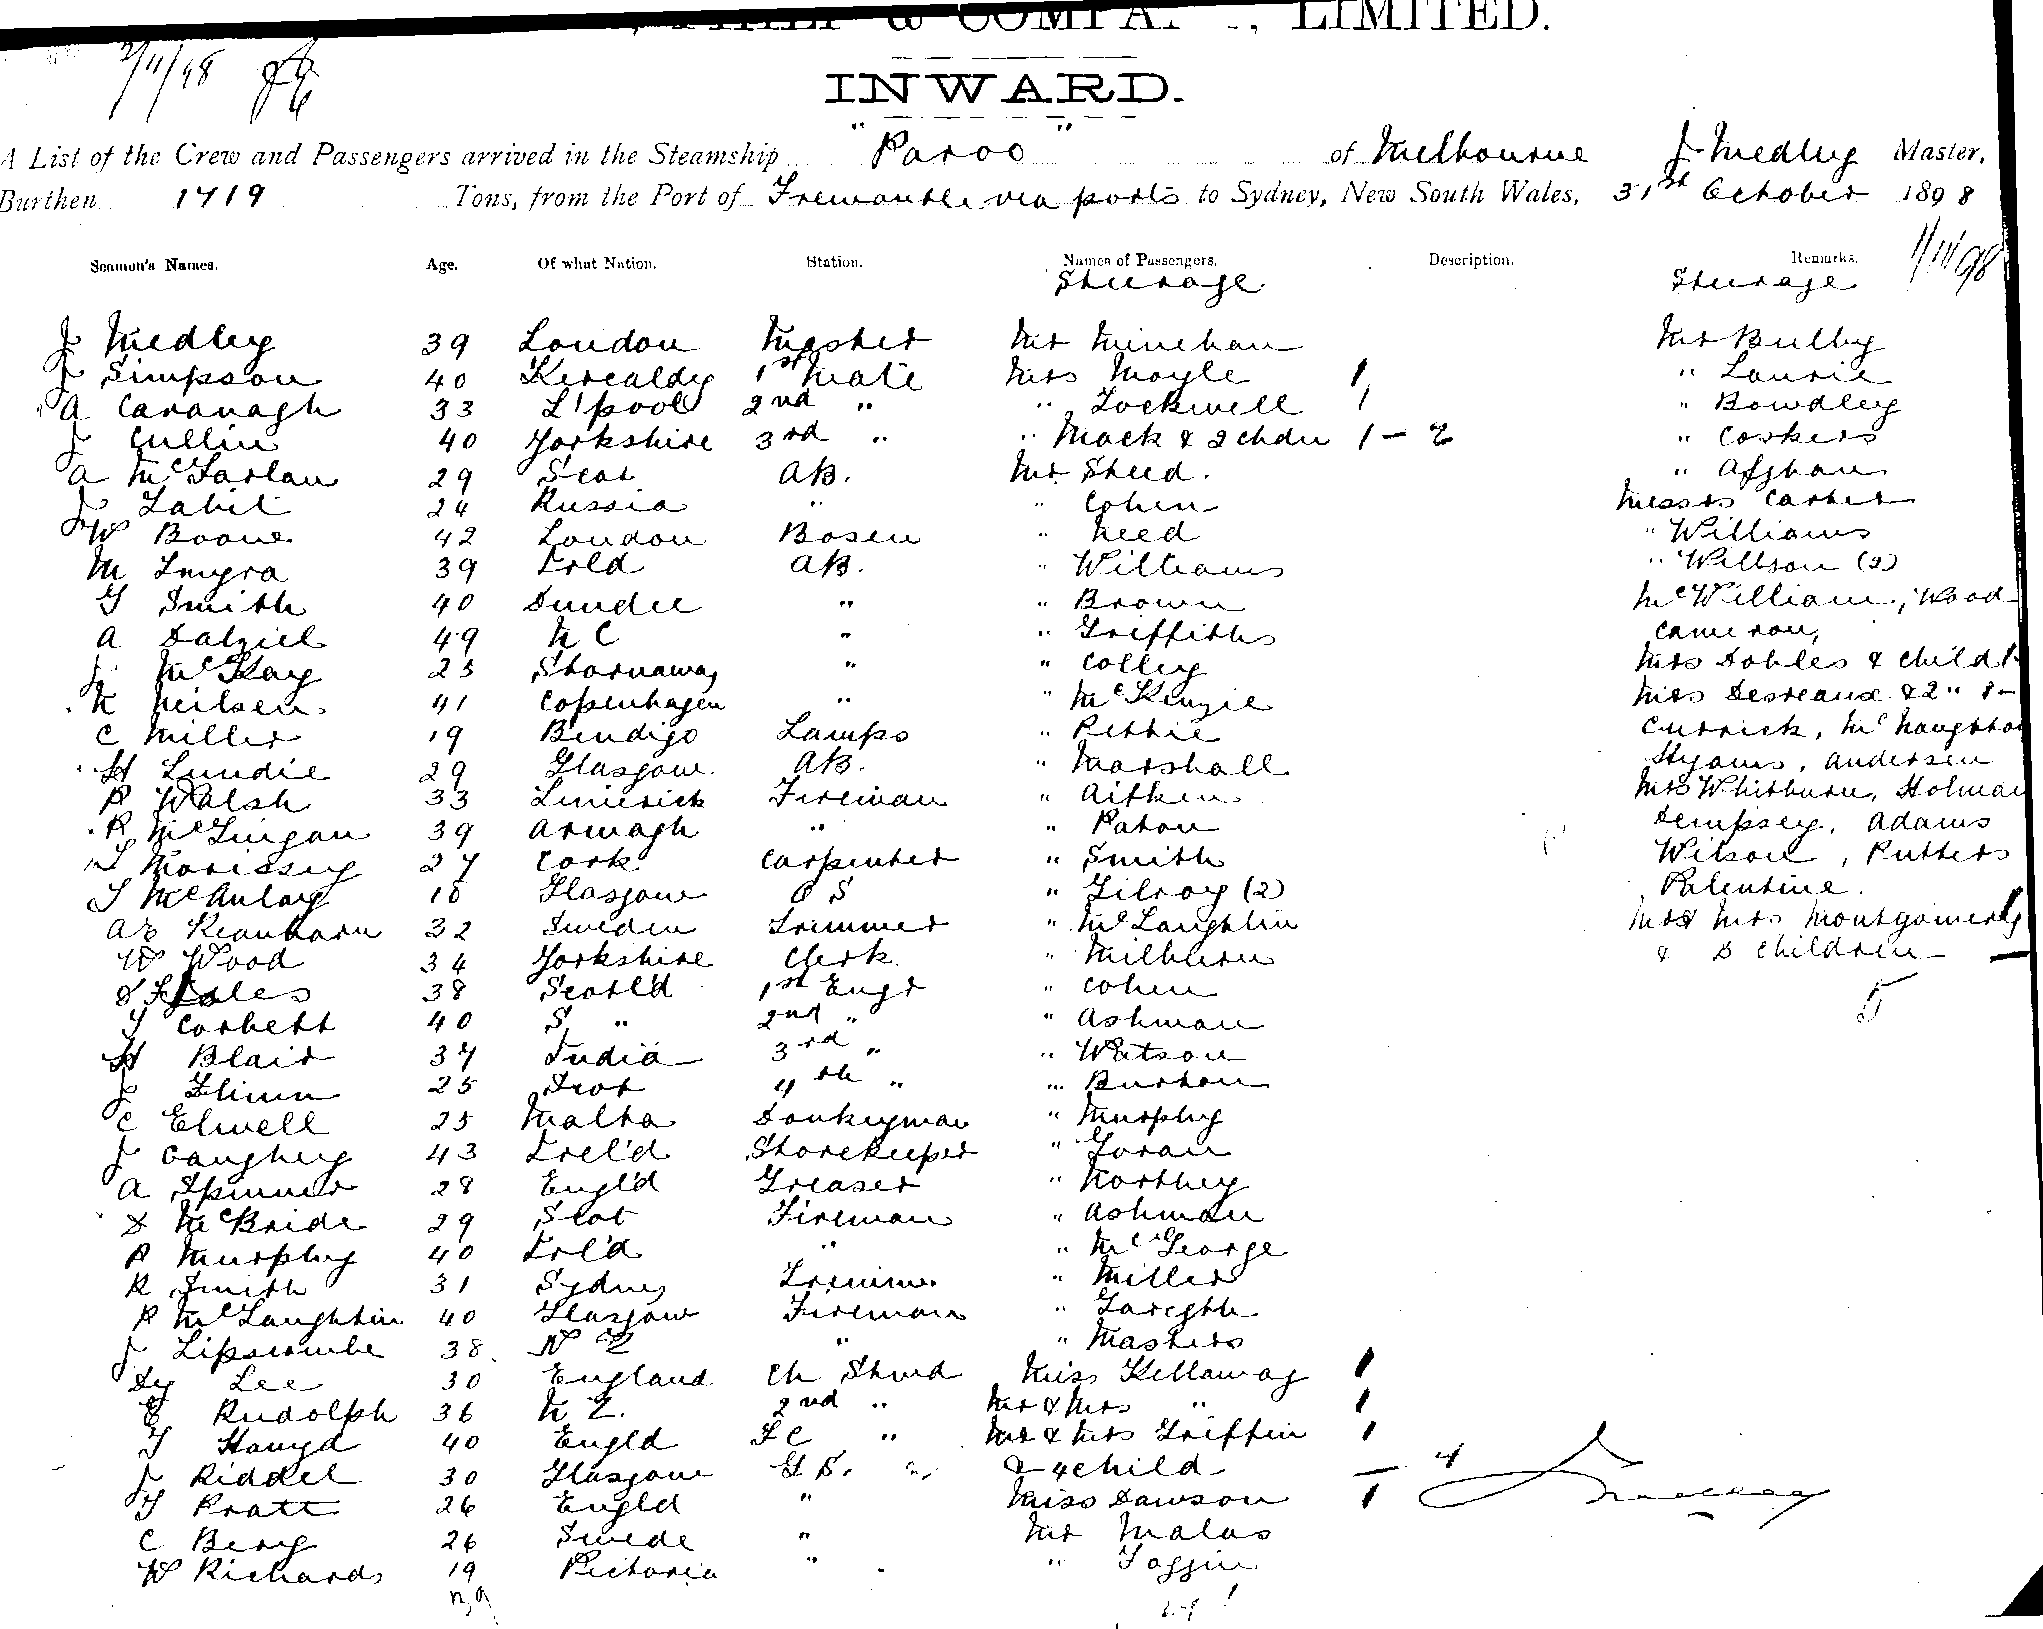 PHILP & COMPANY, LIMITED.
2/11/98
INWARD.
A List of the Crew and Passengers arrived in the Steamship "Paroo" of Melbourne J Medley Master,
Burthen 1719 Tons, from the Port of Fremantle via ports to Sydney, New South Wales, 31st October 1898
1/11/98
Seamen's Names. Age. Of what Nation. Station. Names of Passengers. Description. Remarks.
Steerage Steerage
J Medley 39 London Master Mr Minehan Mr Bulby
J Simpson 40 Kircaldy 1st Mate Mrs Moyle 1 " Laurie
A Cavanagh 33 L'pool 2nd " " Lockwell 1 " Bowdley
J Cullin 40 Yorkshire 3rd " " Mack & 2 chdn 1 - 2 " Coskers
A McFarlan 29 Scot AB. Mr Steed. " Afghan
J Labil 24 Russia " " Cohen Messrs Carter
W Boone 42 London Bosen " Need " Williams
M Smyra 39 Irld AB. " Williams " Willson (2)
G Smith 40 Dundee " " Brown McWilliam, Wood
A Dalziel 49 N C " " Griffiths Cameron,
J McKay 23 Stornaway " " Colley Mrs Dobles & child 1
N Neilsen 41 Copenhagen " " McKenzie Mrs Desreaux & 2 "
C Miller 19 Bendigo Lamps " Pettie Currick, McNaughton
H Lundie 29 Glasgow AB. " Marshall Hyams, Andersen
P Walsh 33 Limerick Fireman " Aitken Mrs Whitburn, Holman
P McGuigan 39 Armagh " " Paton Dempsey, Adams
T Morissey 27 Cork Carpenter " Smith Wilson, Putters
T McAulay 18 Glasgow O S " Gilroy (2) Palentine.
32 Sweden Trimmer " McLaughlin Mr & Mrs Montgomery
W Wood 34 Yorkshire Clerk " Milburn & 5 children
38 Scotl'd 1st Engr " Cohen 5
T Corbett 40 S " 2nd " " Ashman
H Blair 37 India 3rd " " Watson
J Flinn 25 Scot 4th " " Burton
C Elwell 25 Malta Donkeyman " Murphy
J Caughey 43 Irel'd Storekeeper " Goran
A Spinner 28 Engl'd Greaser " Northey
D McBride 29 Scot Fireman " Ashman
P Murphy 40 Irl'd " " McGeorge
R Smith 31 Sydney Trimmer " Miller
P McLaughlin 40 Glasgow Fireman
J Lipscombe 38 N Z " " Masters
Sy Lee 30 England Ch Stwd Miss Kellaway 1
E Rudolph 36 N Z. 2nd " Mr & Mrs " 1
T Hauyd 40 Engld F C " Mr & Mrs Griffin 1
J Riddel 30 Glasgow G S. " & 4 child — 4
T Pratt 26 Engld " Miss Dawson 1
C Berg 26 Swede " Mr Malas
W Richards 19 Victoria " " Goggin